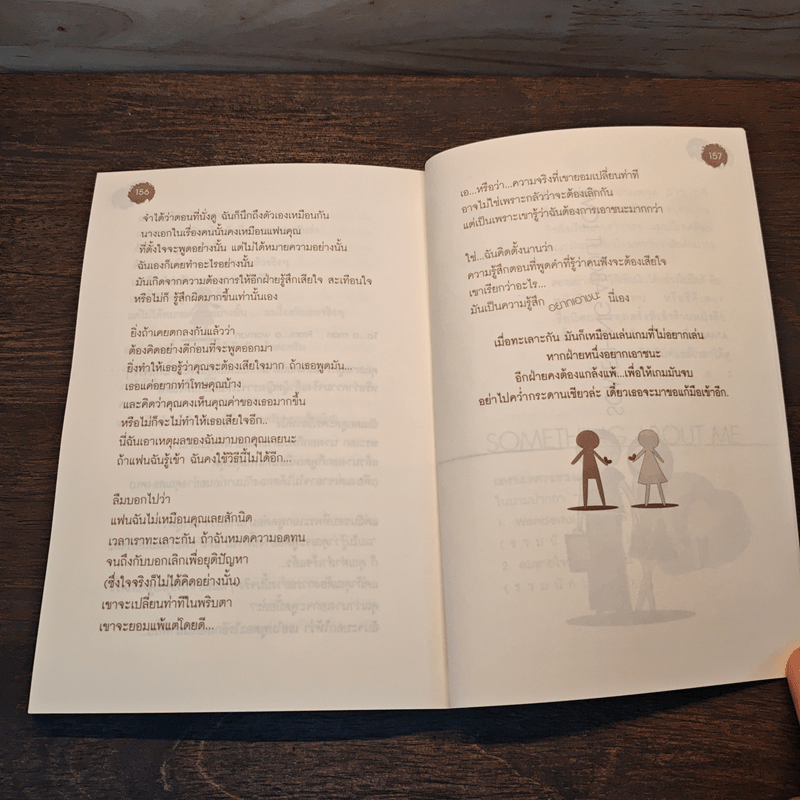 156
จำได้ว่าตอนที่นั่งดู ฉันก็นึกถึงตัวเองเหมือนกัน
นางเอกในเรื่องคนนั้นคงเหมือนแฟนคุณ
ที่ตั้งใจจะพูดอย่างนั้น แต่ไม่ได้หมายความอย่างนั้น
ฉันเองก็เคยทำอะไรอย่างนั้น
มันเกิดจากความต้องการให้อีกฝ่ายรู้สึกเสียใจ สะเทือนใจ
หรือไม่ก็ รู้สึกผิดมากขึ้นเท่านั้นเอง
ยิ่งถ้าเคยตกลงกันแล้วว่า
ต้องคิดอย่างดีก่อนที่จะพูดออกมา
ยิ่งทำให้เธอรู้ว่าคุณจะต้องเสียใจมาก ถ้าเธอพูดมัน...
เธอแค่อยากทำโทษคุณบ้าง
และคิดว่าคุณคงเห็นคุณค่าของเธอมากขึ้น
หรือไม่ก็จะไม่ทำให้เธอเสียใจอีก..
นี่ฉันเอาเหตุผลของฉันมาบอกคุณเลยนะ
ถ้าแฟนฉันรู้เข้า ฉันคงใช้วิธีนี้ไม่ได้อีก...
ลืมบอกไปว่า
แฟนฉันไม่เหมือนคุณเลยสักนิด
เวลาเราทะเลาะกัน ถ้าฉันหมดความอดทน
จนถึงกับบอกเลิกเพื่อยุติปัญหา
(ซึ่งใจจริงก็ไม่ได้คิดอย่างนั้น)
เขาจะเปลี่ยนท่าทีในพริบตา
เขาจะยอมแพ้แต่โดยดี...
157
เอ...หรือว่า...ความจริงที่เขายอมเปลี่ยนท่าที
อาจไม่ใช่เพราะกลัวว่าจะต้องเลิกกัน
แต่เป็นเพราะเขารู้ว่าฉันต้องการเอาชนะมากกว่า
ใช่...ฉันคิดตั้งนานว่า
ความรู้สึกตอนที่พูดคำที่รู้ว่าคนฟังจะต้องเสียใจ
เขาเรียกว่าอะไร...
มันเป็นความรู้สึก อยากเอาชนะ นี่เอง
เมื่อทะเลาะกัน มันก็เหมือนเล่นเกมที่ไม่อยากเล่น
หากฝ่ายหนึ่งอยากเอาชนะ
อีกฝ่ายคงต้องแกล้งแพ้...เพื่อให้เกมมันจบ
อย่าไปคว่ำกระดานเชียวล่ะ เดี๋ยวเธอจะมาขอแก้มือเข้าอีก.
SOMETHING ABOUT ME